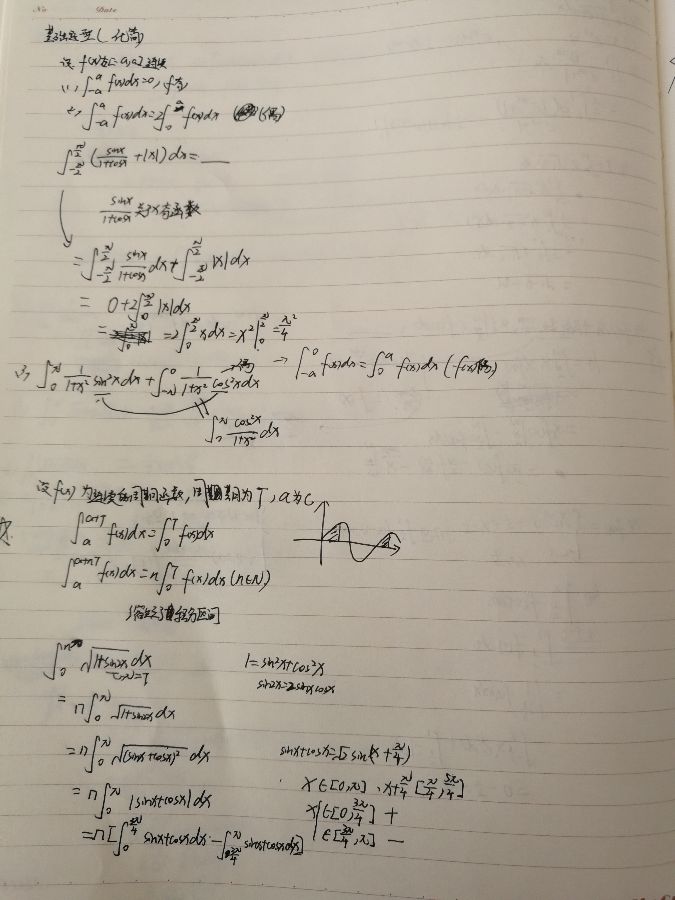 No Date
基础题型(化简)
设 f(x)在[-a,a]连续
(1), ∫_{-a}^{a} f(x)dx=0, f奇
(2), ∫_{-a}^{a} f(x)dx=2∫_{0}^{a} f(x)dx (偶)
∫_{-π/2}^{π/2} (sinx/(1+cosx) +|x|) dx=___
sinx/(1+cosx) 关于x奇函数
=∫_{-π/2}^{π/2} sinx/(1+cosx) dx+∫_{-π/2}^{π/2} |x|dx
= 0+2∫_{0}^{π/2} |x|dx
= =2∫_{0}^{π/2} xdx=x²|_{0}^{π/2}=π²/4
∫_{0}^{π} 1/(1+x²) sin²xdx+∫_{-π}^{0} 1/(1+x²) cos²xdx →偶 → ∫_{-a}^{0} f(x)dx=∫_{0}^{a} f(x)dx (f(x)偶)
∫_{0}^{π} cos²x/(1+x²) dx
设f(x)为连续的周期函数,周期为T,a为C
∫_{a}^{a+T} f(x)dx=∫_{0}^{T} f(x)dx
∫_{a}^{a+nT} f(x)dx=n∫_{0}^{T} f(x)dx(n∈N)
积分区间
∫_{0}^{nπ} √(1+sin2x) dx 1=sin²x+cos²x
π=T sin2x=2sinxcosx
= n∫_{0}^{π} √(1+sin2x) dx
=n∫_{0}^{π} √((sinx+cosx)²) dx sinx+cosx=√2 sin(x+π/4)
= n∫_{0}^{π} |sinx+cosx|dx x∈[0,π], x+π/4 [π/4, 5π/4]
x∈[0,3π/4] +
=n[∫_{0}^{3π/4} sinx+cosxdx-∫_{3π/4}^{π} sinx+cosxdx] ∈[3π/4,π] -